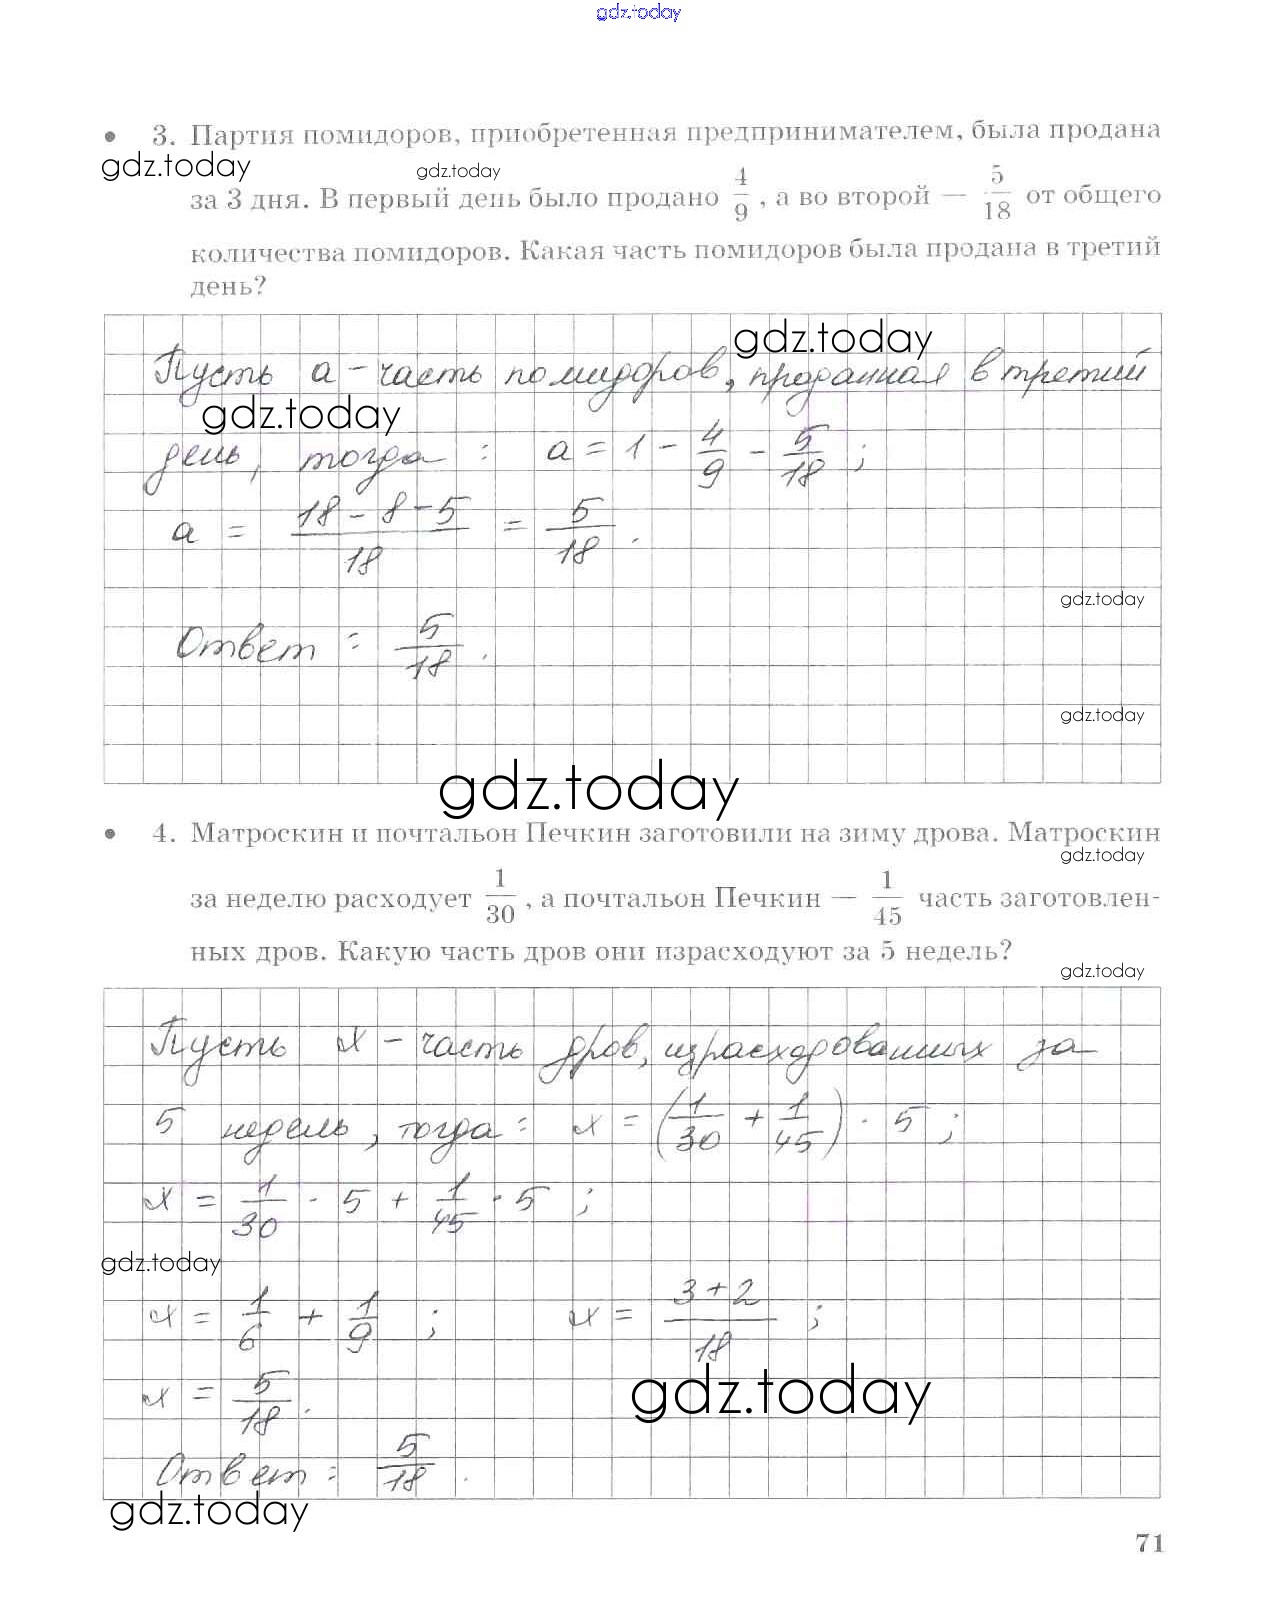 gdz.today
• 3. Партия помидоров, приобретенная предпринимателем, была продана
gdz.today gdz.today
за 3 дня. В первый день было продано 4/9, а во второй — 5/18 от общего
количества помидоров. Какая часть помидоров была продана в третий
день?
gdz.today
Пусть a - часть помидоров, проданная в третий
gdz.today
день, тогда: a = 1 - 4/9 - 5/18;
a = (18 - 8 - 5)/18 = 5/18.
gdz.today
Ответ: 5/18.
gdz.today
gdz.today
• 4. Матроскин и почтальон Печкин заготовили на зиму дрова. Матроскин
gdz.today
за неделю расходует 1/30, а почтальон Печкин — 1/45 часть заготовлен-
ных дров. Какую часть дров они израсходуют за 5 недель?
gdz.today
Пусть x - часть дров, израсходованных за
5 недель, тогда: x = (1/30 + 1/45) · 5;
x = 1/30 · 5 + 1/45 · 5;
gdz.today
x = 1/6 + 1/9; x = (3+2)/18;
x = 5/18.
gdz.today
Ответ: 5/18.
gdz.today
71